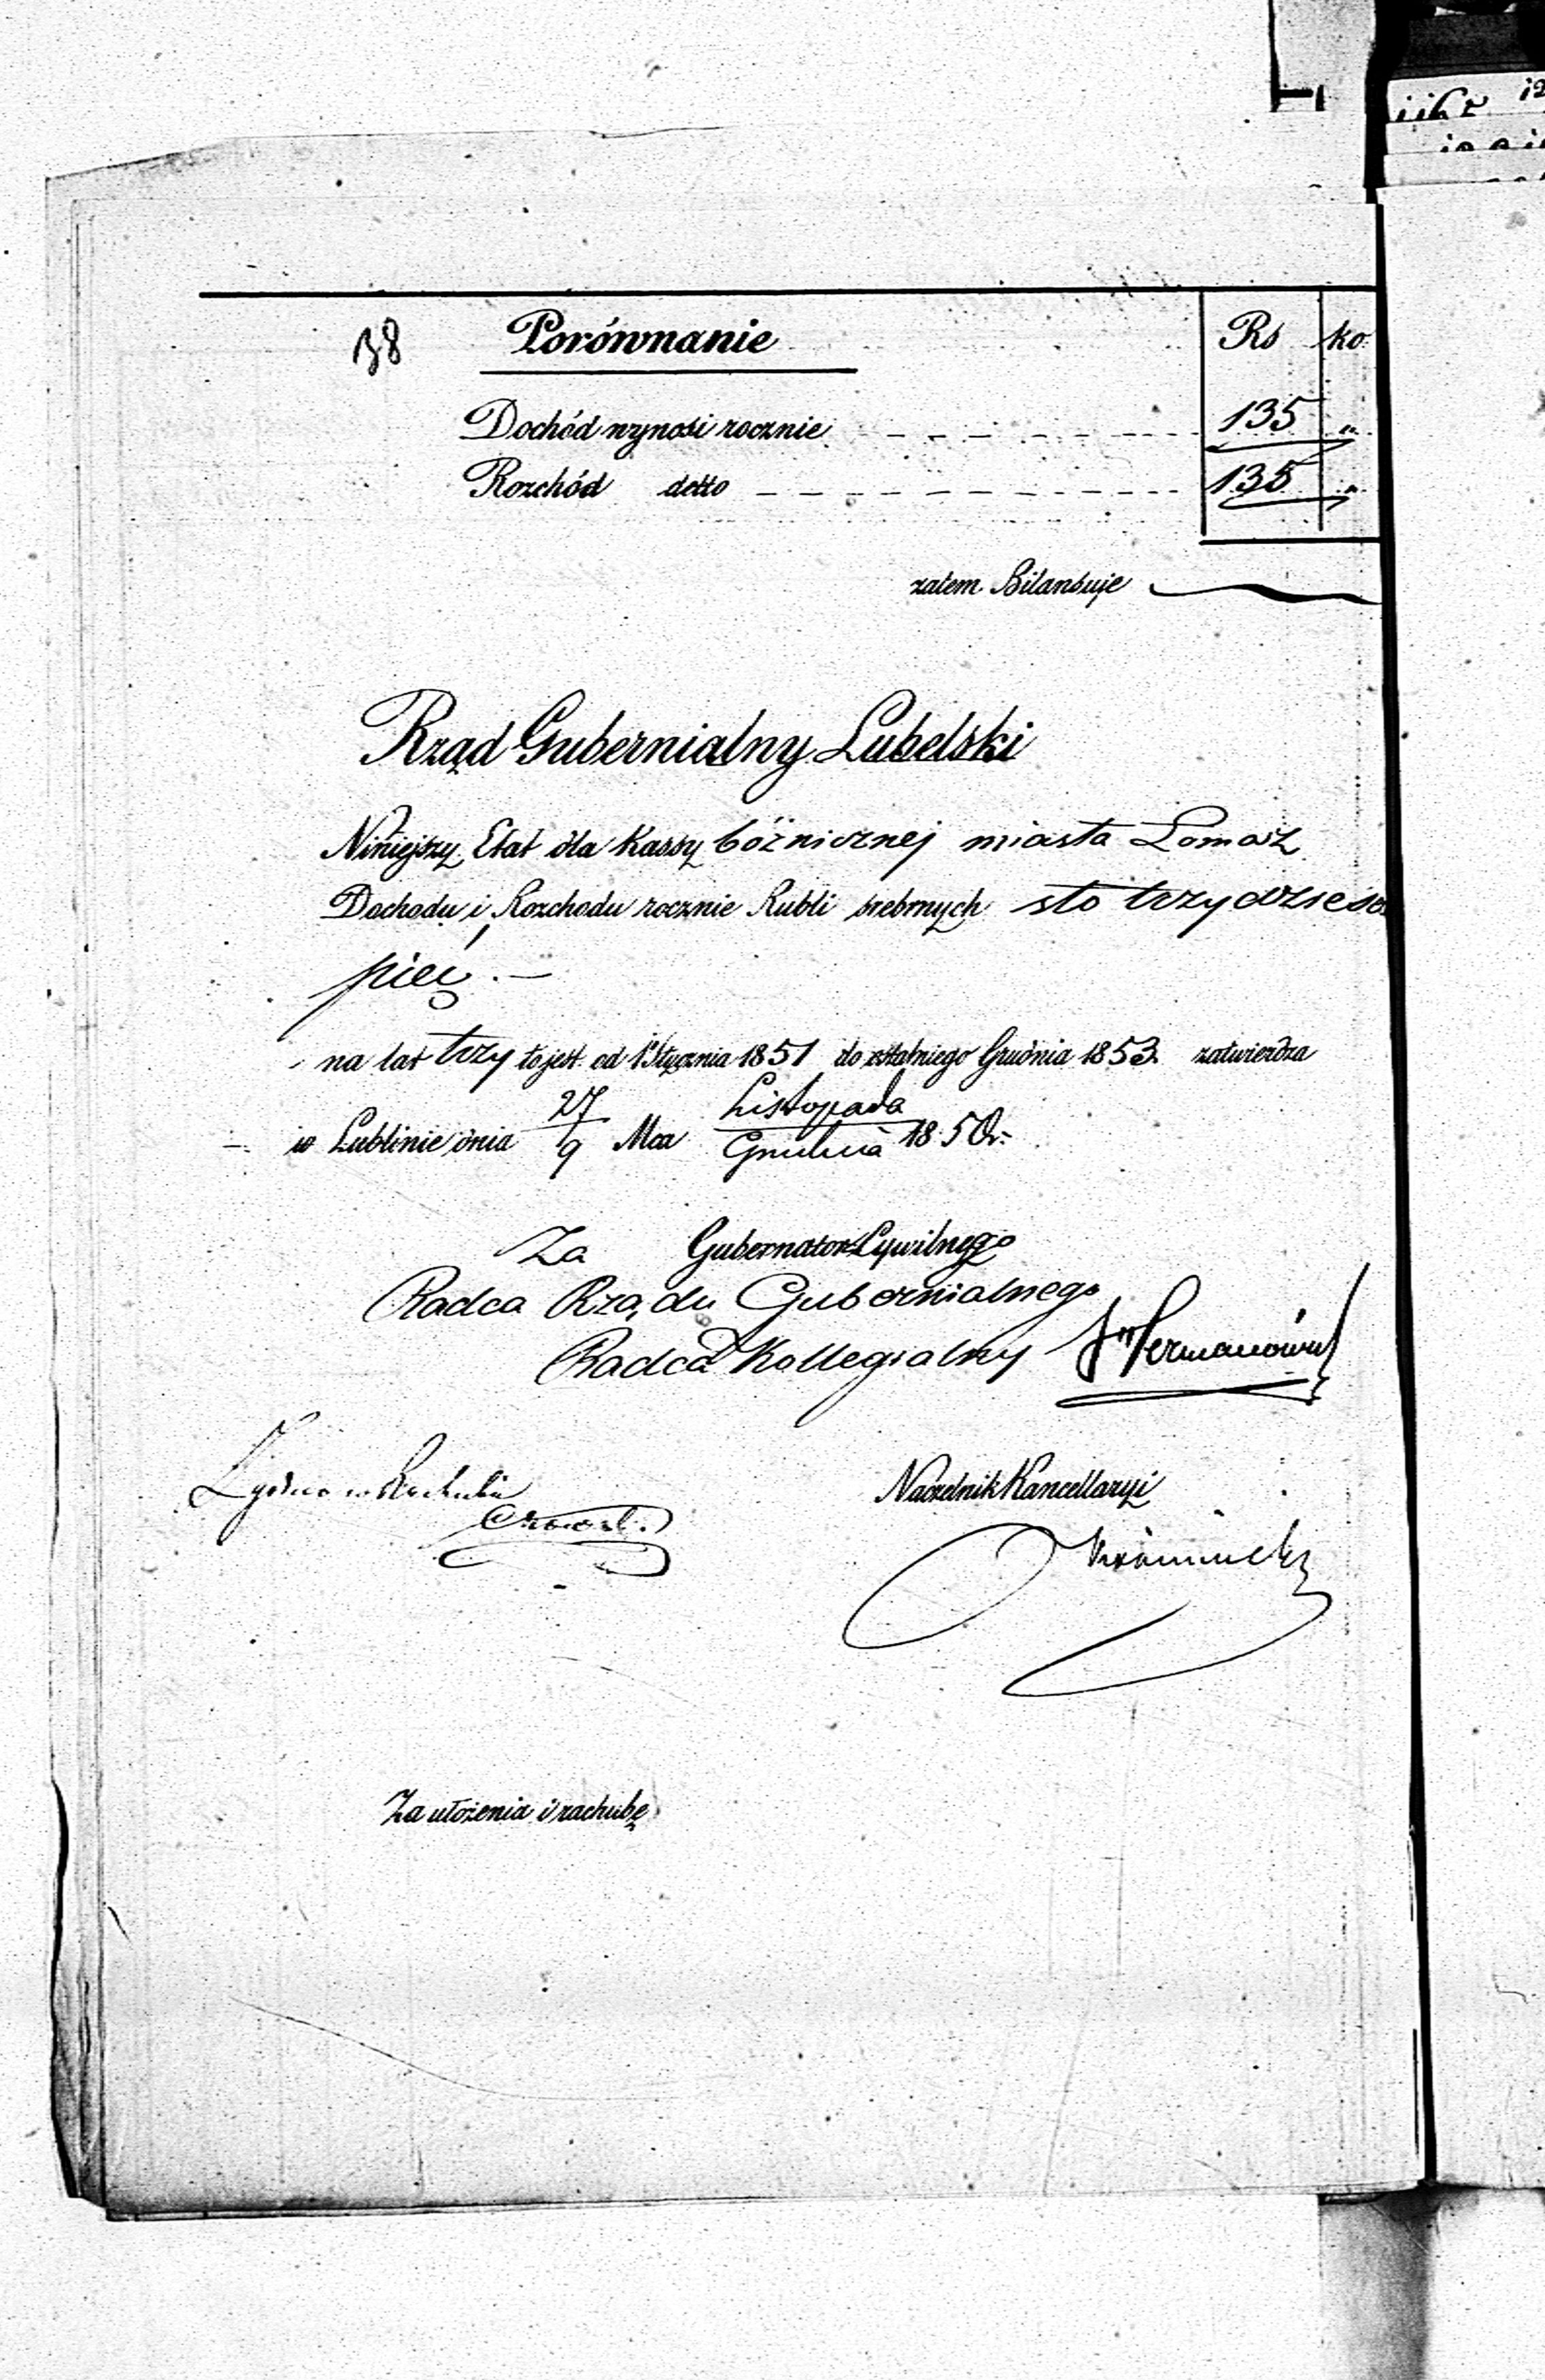 38 Porównanie Rs ko
Dochód wynosi rocznie 135 "
Rozchód detto 135 "
zatem Bilansuje
Rząd Gubernialny Lubelski
Niniejszy Etat dla Kassy bóżnicznej miasta Łomaz
Dochodu i Rozchodu rocznie Rubli srebrnych sto trzydzieści
pięć.—
na lat trzy to jest od 1 Stycznia 1851 do ostatniego Grudnia 1853 zatwierdza
w Lublinie dnia 27/9 Mca Listopada/Grudnia 1850 r.
Za Gubernatora Cywilnego
Radca Rządu Gubernialnego
Radca Kollegialny
Zgodno w Rachubie
Naczelnik Kancellaryi
Za ułożenia i rachubę